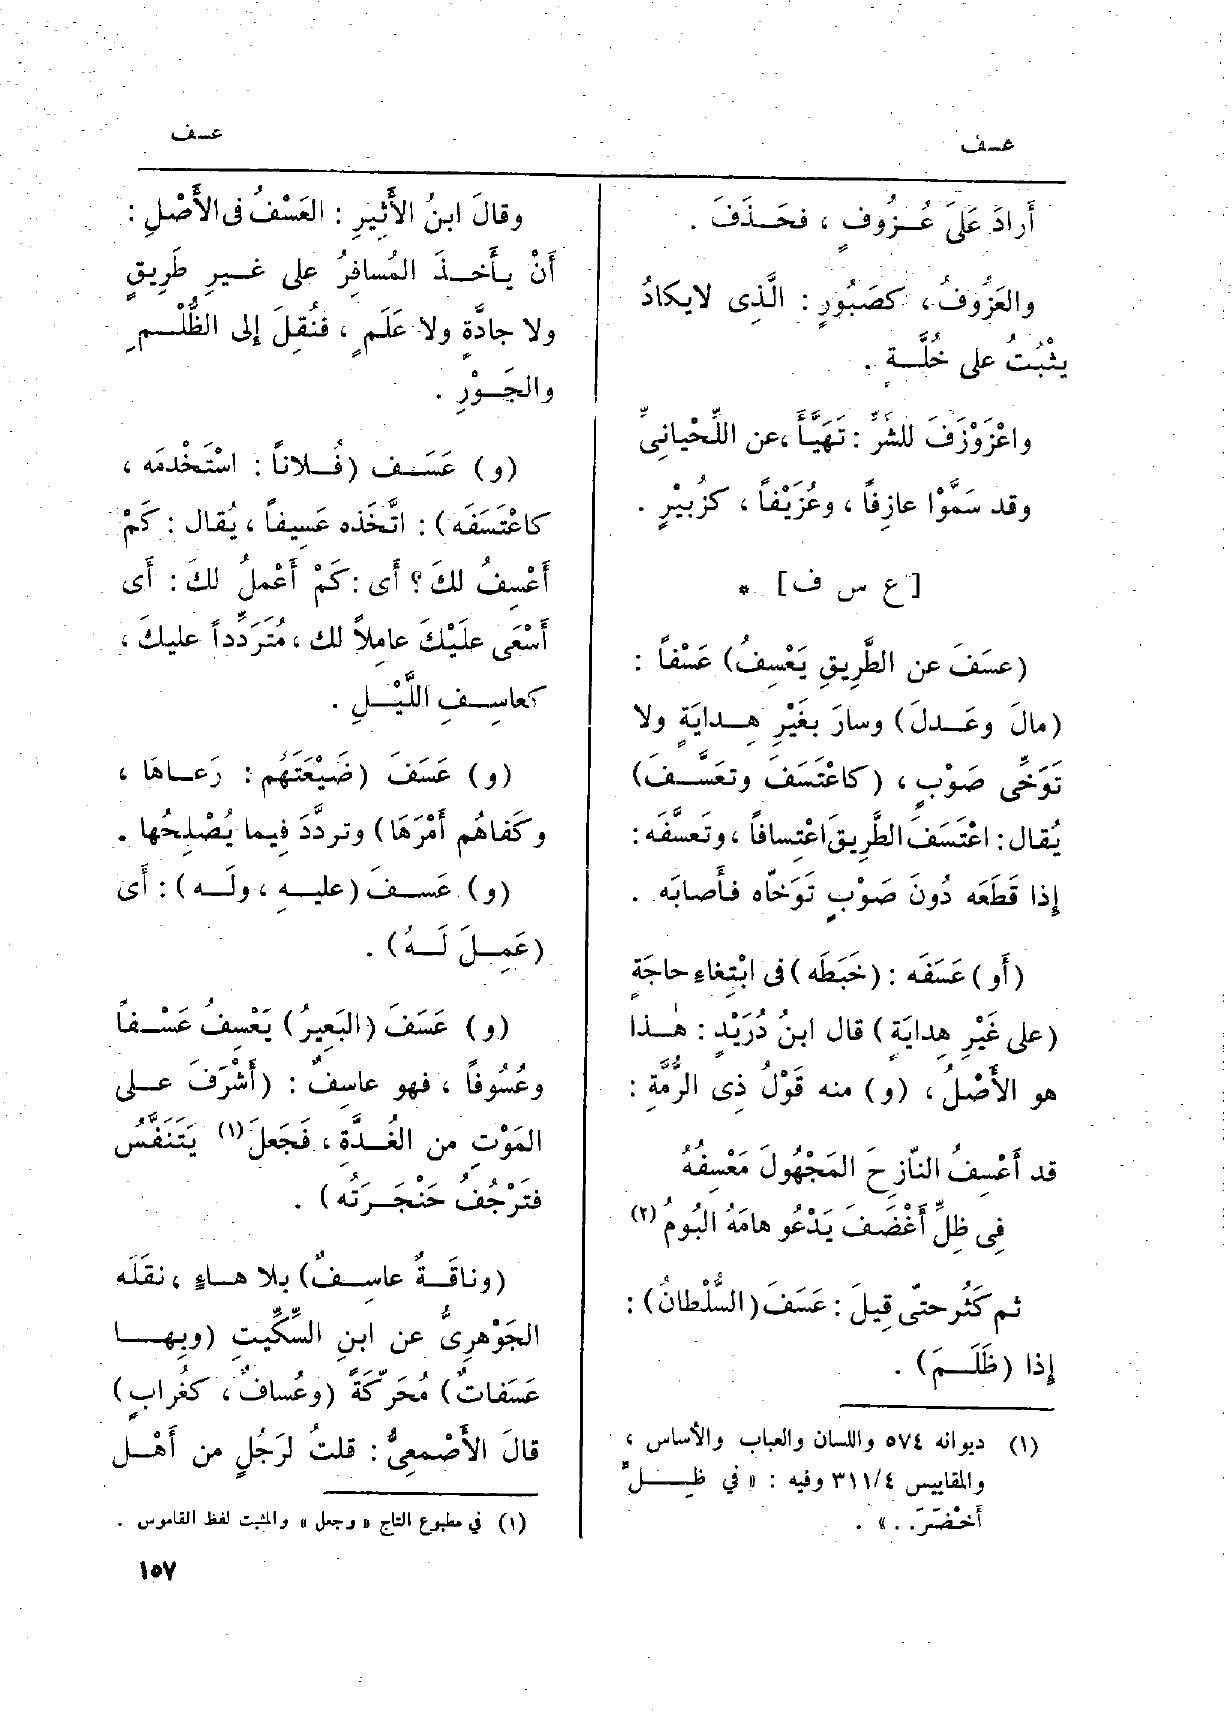 عسف
عسف
أَرادَ عَلَى عُزُوفٍ ، فحَذَفَ .
والعَزُوفُ ، كصَبُورٍ : الَّذِى لايكادُ
يثْبُتُ على خُلَّةٍ .
واعْزَوْزَفَ للشَرِّ : تَهَيَّأَ ،عن اللِّحْيانِىِّ
وقد سَمَّوْا عازِفاً ، وعُزَيْفاً ، كزُبيْرٍ .
[ ع س ف ] *
(عسَفَ عن الطَّرِيقِ يَعْسِفُ) عَسْفاً :
(مالَ وعَدلَ) وسارَ بغَيْرِ هِدايَةٍ ولا
تَوَخِّى صَوْبٍ ، (كاعْتَسَفَ وتعَسَّفَ)
يُقال : اعْتَسَفَ الطَّرِيقَ اعْتِسافاً ، وتَعسَّفَه :
إِذا قَطَعَه دُونَ صَوْبٍ تَوَخّاه فأَصابَه .
(أَو) عَسَفَه : (خَبَطَه) فى ابْتِغاءِ حاجَةٍ
(على غَيْرِ هِدايَةٍ) قال ابنُ دُرَيْدٍ : هٰذا
هو الأَصْلُ ، (و) منه قَوْلُ ذِى الرُّمَّةِ :
قد أَعْسِفُ النّازِحَ المَجْهُولَ مَعْسِفُهُ
فِى ظِلِّ أَغْضَفَ يَدْعُو هامَهُ البُومُ (٢)
ثم كَثُر حتّى قِيلَ : عَسَفَ (السُّلْطانُ) :
إِذا (ظَلَمَ) .
(١) ديوانه ٥٧٤ واللسان والعباب والأساس ،
والمقاييس ٣١١/٤ وفيه : « في ظِلِّ
أَخْضَرَ. . » .
وقالَ ابنُ الأَثِيرِ : العَسْفُ فى الأَصْلِ :
أَنْ يأْخذَ المُسافِرُ على غيرِ طَرِيقٍ
ولا جادَّةٍ ولا عَلَمٍ ، فنُقِلَ إِلى الظُّلْمِ
والجَوْرِ .
(و) عَسَف (فُلاناً : اسْتَخْدمَه ،
كاعْتَسَفَه) : اتَّخَذه عَسِيفاً ، يُقال : كَمْ
أَعْسِفُ لكَ ؟ أَى : كَمْ أَعْملُ لكَ : أَى
أَسْعَى علَيْكَ عاملاً لك ، مُتَرَدِّداً عليكَ ،
كعاسِفِ اللَّيْلِ .
(و) عَسَفَ (ضَيْعَتَهُم : رَعاهَا ،
وكَفاهُم أَمْرَهَا) وتردَّدَ فِيما يُصْلِحُها .
(و) عَسفَ (عليهِ ، ولَه) : أَى
(عَمِلَ لَهُ) .
(و) عَسَفَ (البَعِيرُ) يَعْسِفُ عَسْفاً
وعُسُوفاً ، فهو عاسِفٌ : (أَشْرَفَ على
المَوْتِ من الغُدَّةِ ، فَجَعلَ(١) يَتَنَفَّسُ
فتَرْجُفُ حَنْجَرَتُه) .
(وناقَةٌ عاسِفٌ) بلا هاءٍ ، نقَلَه
الجَوْهرِىُّ عن ابنِ السِّكِّيتِ (وبِها
عَسَفاتٌ) مُحَرّكَةً (وعُسافٌ ، كغُرابٍ)
قالَ الأَصْمعِىُّ : قلتُ لرَجُلٍ من أَهْل
(١) في مطبوع التاج « وجعل » والمثبت لفظ القاموس .
١٥٧